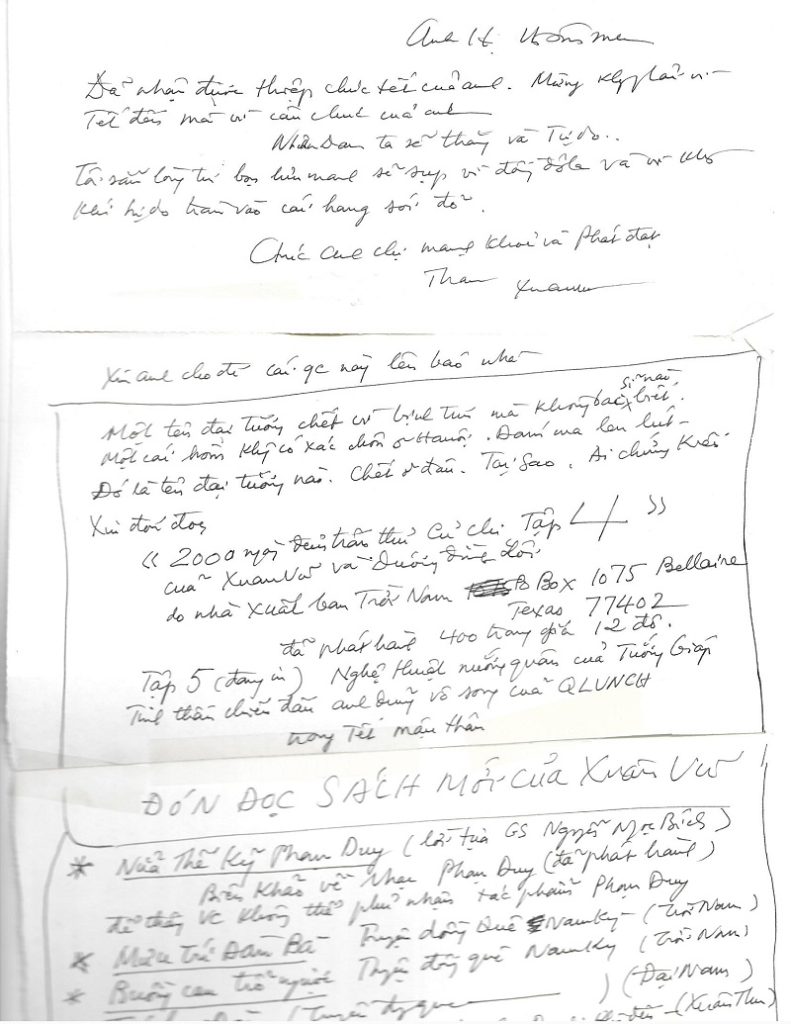 Đã nhận được thiệp chúc tết của anh. Mừng
Tết đến mà vì của anh
Nhân Dân ta sẽ thắng và Tự do..
Tôi sẵn lòng sẽ sụp vì đống đôla và vì
Khí tự do tràn vào cái hang sói đó.
Chúc anh chị mạnh khoẻ và phát đạt
Thân Xuân Vũ
Xin anh cho đi cái qc này lên báo nhà
Một tên đại tướng chết vì bịnh mà không bác sĩ nào biết.
Một cái hòm không có xác chôn ở Hanội. Đám ma lén lút -
Đó là tên đại tướng nào. Chết ở đâu. Tại sao. Ai chứng kiến
Xin đón đọc
« 2000 ngày đêm trấn thủ Củ Chi Tập 4 »
của Xuân Vũ và Dương Đình Lôi
do nhà xuất bản Trời Nam PO Box 1075 Bellaire
Texas 77402
đã phát hành 400 trang giá 12 đô.
Tập 5 (đang in) Nghệ thuật nướng quân của Tướng Giáp
Tinh thần chiến đấu anh dũng vô song của QLVNCH
trong Tết mậu thân
ĐÓN ĐỌC SÁCH MỚI CỦA XUÂN VŨ
* Nửa Thế Kỷ Phạm Duy (lời tựa GS Nguyễn Ngọc Bích)
Biên khảo về Nhạc Phạm Duy (đã phát hành)
để thấy VC không thể phủ nhận tác phẩm Phạm Duy
* Mưu Trí Đàn Bà Truyện đồng Quê Nam Kỳ - (Trời Nam)
* Buồng cau trổ ngược Truyện đồng quê Nam Kỳ (Trời Nam)
(Truyện đg que ) (Đại Nam)
(Xuân Thu)